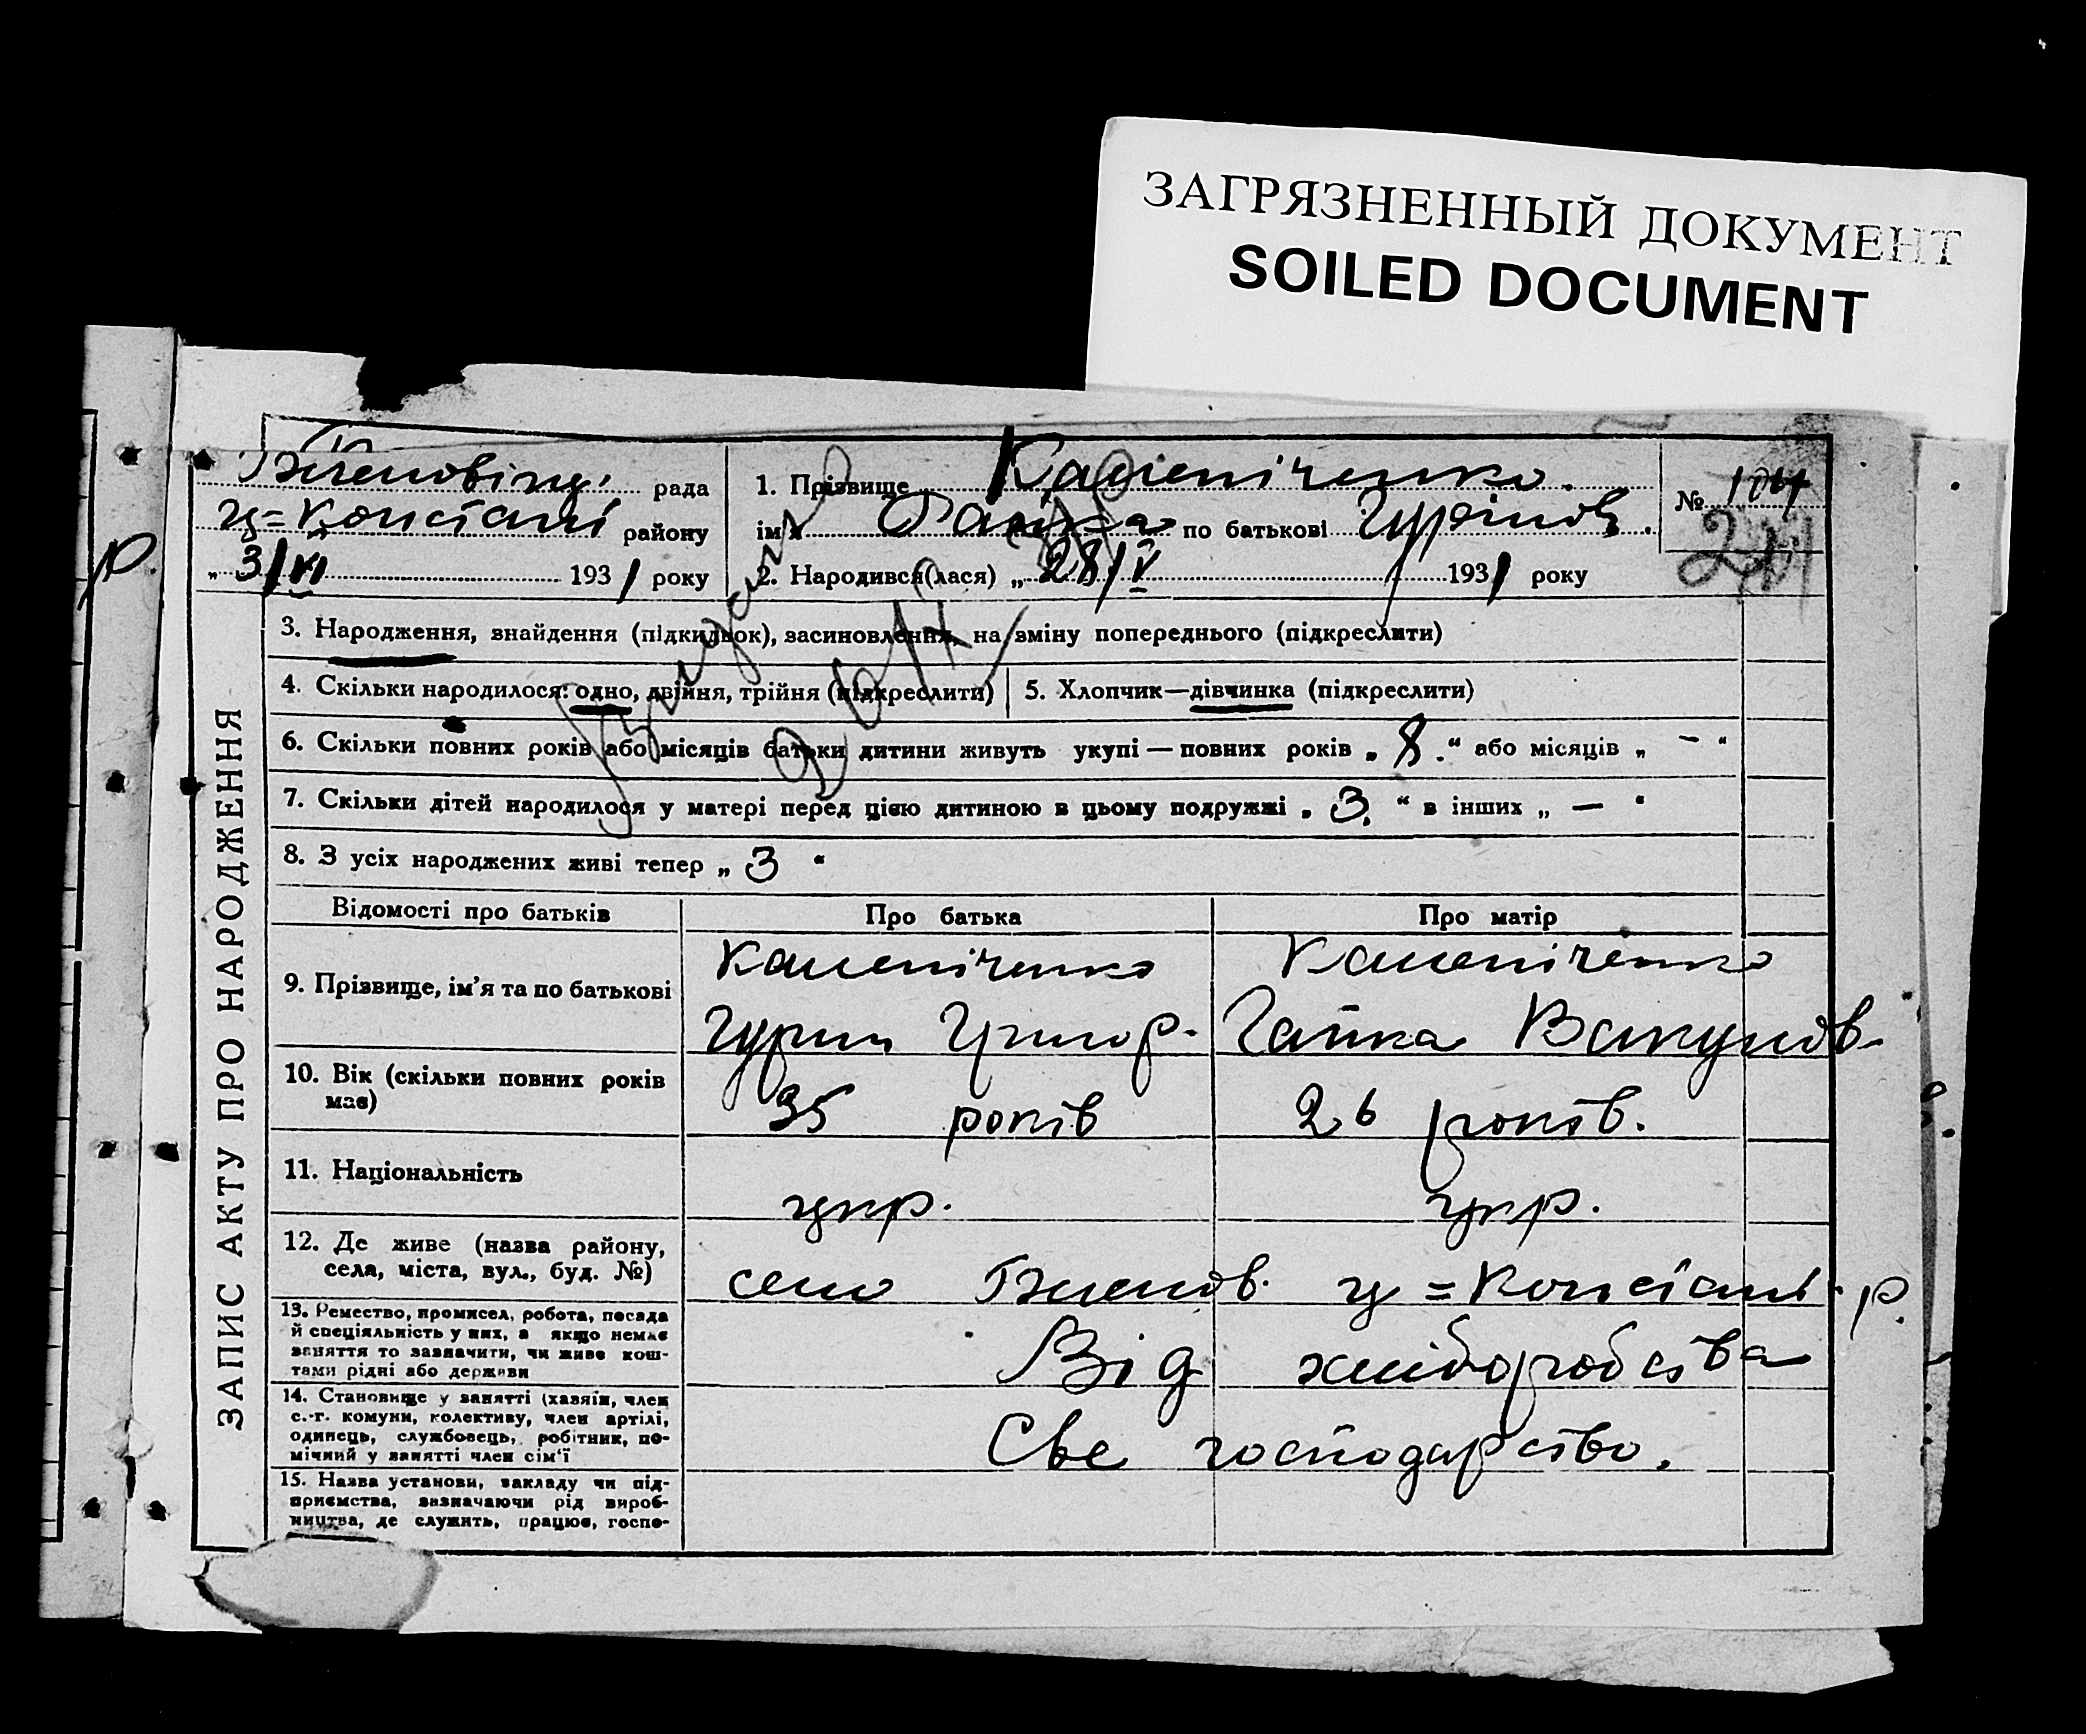 ЗАГРЯЗНЕННЫЙ ДОКУМЕНТ
SOILED DOCUMENT
рада
район у
„ 3/VI 1931 року
1. Прізвище
ім'я по батькові
2. Народився(лася) „ 28/V 1931 року
№
3. Народження, знайдення (підкидьок), засиновлення, на зміну попереднього (підкреслити)
4. Скільки народилося: одно, двійня, трійня (підкреслити)
5. Хлопчик—дівчинка (підкреслити)
6. Скільки повних років або місяців батьки дитини живуть укупі — повних років „ 8. “ або місяців „ – “
7. Скільки дітей народилося у матері перед цією дитиною в цьому подружжі „ 3. “ в інших „ — “
8. З усіх народжених живі тепер „ 3 “
ЗАПИС АКТУ ПРО НАРОДЖЕННЯ
Відомості про батьків
Про батька
Про матір
9. Прізвище, ім'я та по батькові
Гурин Григор.
Гапка Вакулов.
10. Вік (скільки повних років має)
35 років
26 років.
11. Національність
укр.
укр.
12. Де живе (назва району,
села, міста, вул., буд. №)
село р.
13. Ремество, промисел, робота, посада
й спеціяльність у них, а якщо немає
заняття то зазначити, чи живе кош-
тами рідні або держави
Від хліборобства
14. Становище у занятті (хазяїн, член
с.-г. комуни, колективу, член артілі,
одинець, службовець, робітник, по-
мічний у занятті член сім'ї
Све господарство.
15. Назва установи, закладу чи під-
приємства, зазначаючи рід вироб-
ництва, де служить, працює, госпо-
р.